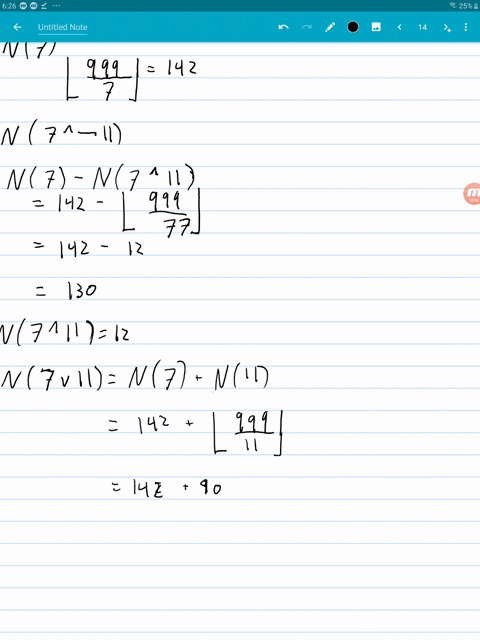 6:26 25%
Untitled Note 14
N(7)
⌊999/7⌋ = 142
N(7 ^ ¬ 11)
N(7) - N(7 ^ 11)
= 142 - ⌊999/77⌋
= 142 - 12
= 130
N(7 ^ 11) = 12
N(7 v 11) = N(7) + N(11)
= 142 + ⌊999/11⌋
= 142 + 90